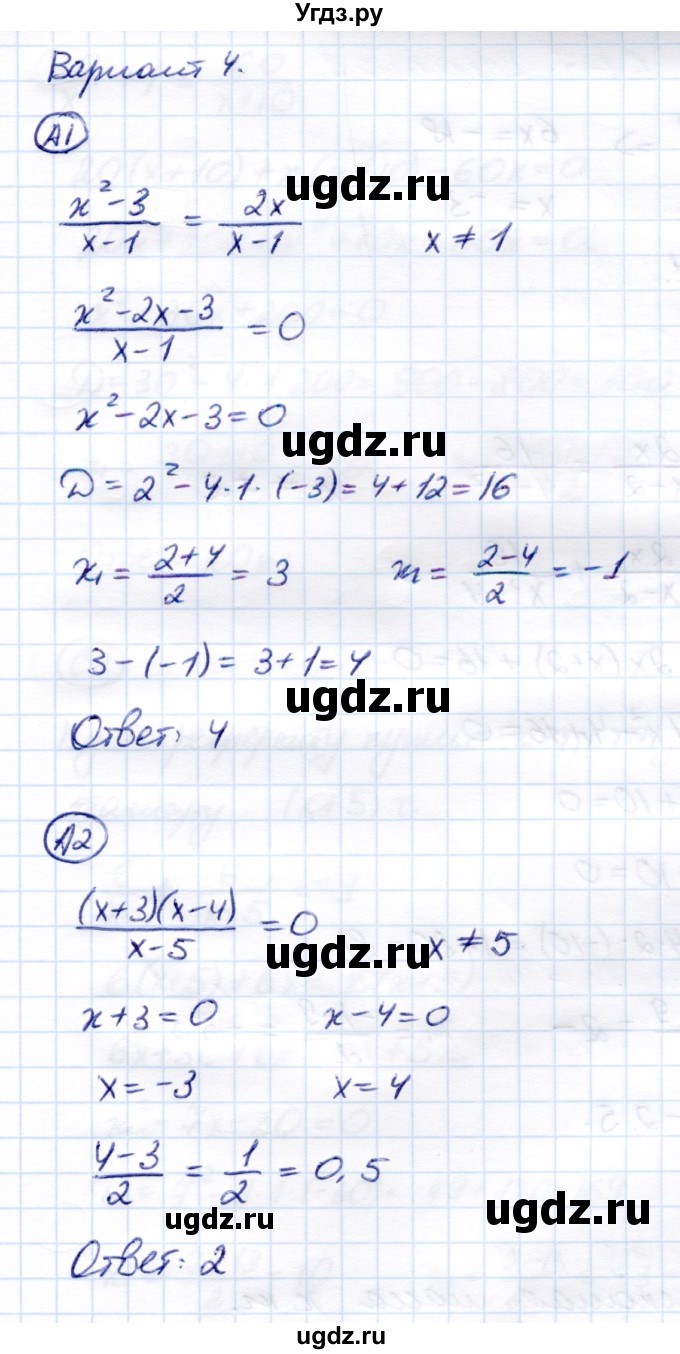 Угдз.ру
Вариант 4.
А1
ugdz.ru
(x²-3)/(x-1) = 2x/(x-1)    x ≠ 1
(x²-2x-3)/(x-1) = 0
x²-2x-3=0
ugdz.ru
D = 2²-4·1·(-3) = 4+12 = 16
x₁ = (2+4)/2 = 3    x₁ = (2-4)/2 = -1
ugdz.ru
3-(-1) = 3+1 = 4
ugdz.ru
Ответ: 4
А2
((x+3)(x-4))/(x-5) = 0    x ≠ 5
ugdz.ru
x+3=0    x-4=0
x=-3    x=4
(4-3)/2 = 1/2 = 0,5
ugdz.ru
ugdz.ru
Ответ: 2
ugdz.ru